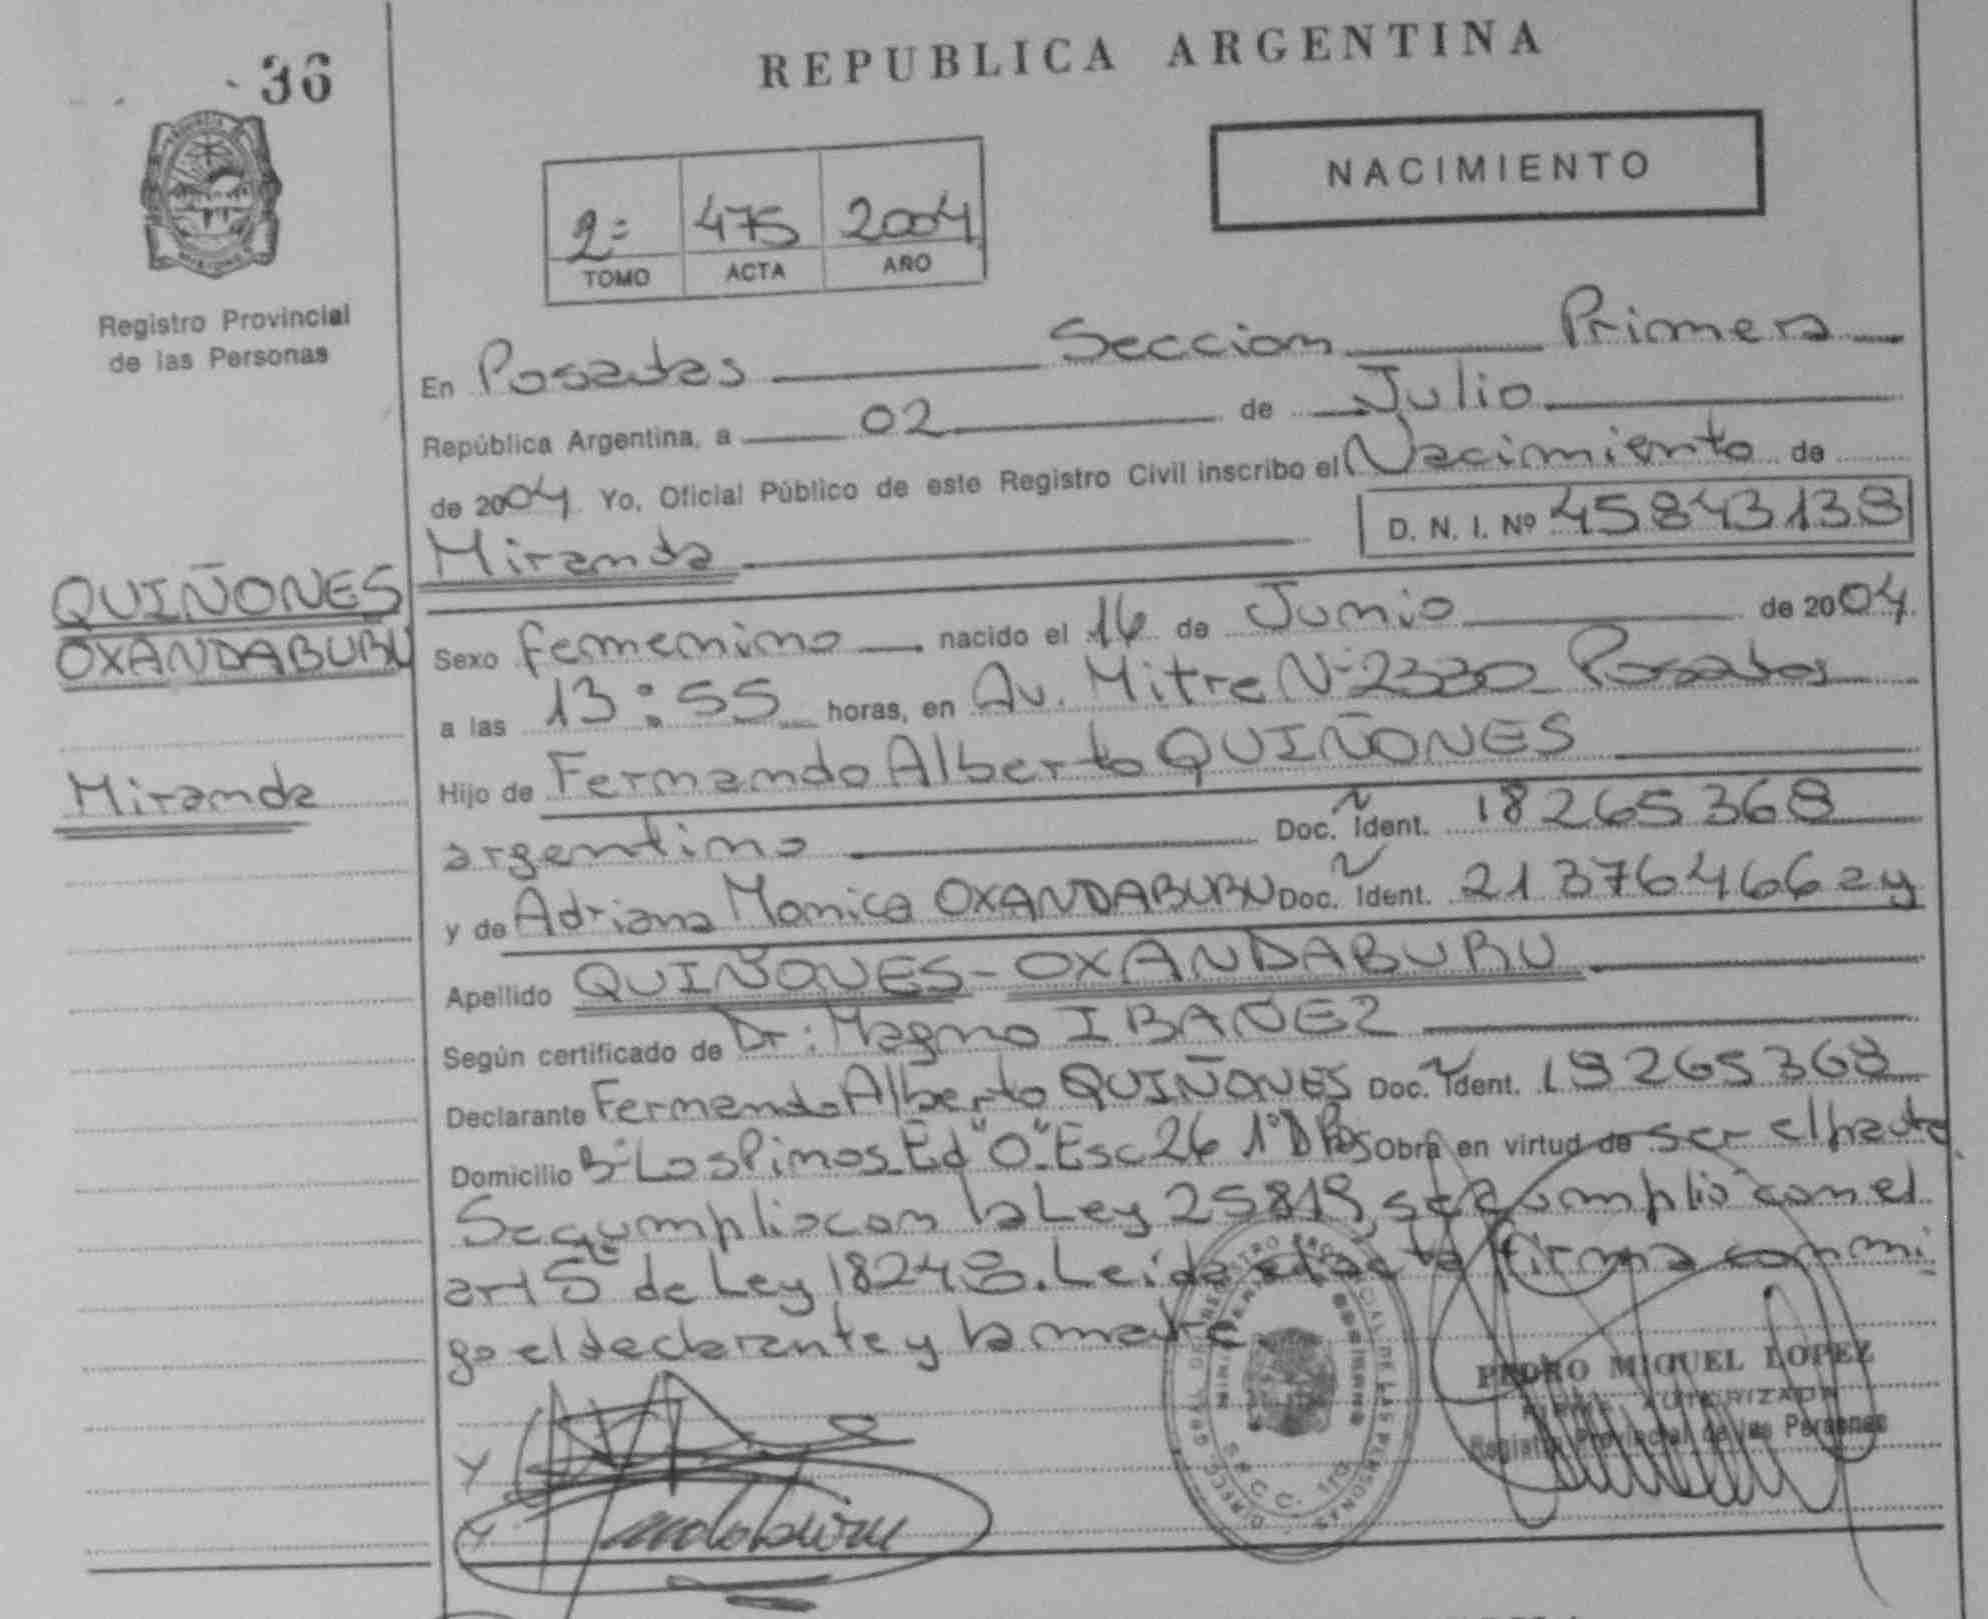 36
REPUBLICA ARGENTINA
NACIMIENTO
2º 475 2004
TOMO ACTA AÑO
Registro Provincial
de las Personas
En Posadas Seccion Primera
República Argentina, a 02 de Julio
de 2004 Yo, Oficial Público de este Registro Civil inscribo el Nacimiento de
Miranda D. N. I. Nº 45843138
QUIÑONES
OXANDABURU
Miranda
Sexo femenino nacido el 16 de Junio de 2004
a las 13:55 horas, en Av. Mitre Nº 2330 Posadas
Hijo de Fernando Alberto QUIÑONES
argentino Doc. Ident. 18265368
y de Adriana Monica OXANDABURU Doc. Ident. 21376466 ay
Apellido QUIÑONES - OXANDABURU
Según certificado de Dr: Magno IBAÑEZ
Declarante Fernando Alberto QUIÑONES Doc. Ident. 18265368
Domicilio Bº Los Pinos Ed "O" Esc 26 1º D Pos Obra en virtud de ser el padre
Se cumplio con la Ley 25819, se cumplio con el
art 5º de Ley 18248. Leida el acta firma conmi
go el declarante y la madre.
PEDRO MIGUEL LOPEZ
FIRMA AUTORIZADA
Registro Provincial de las Personas